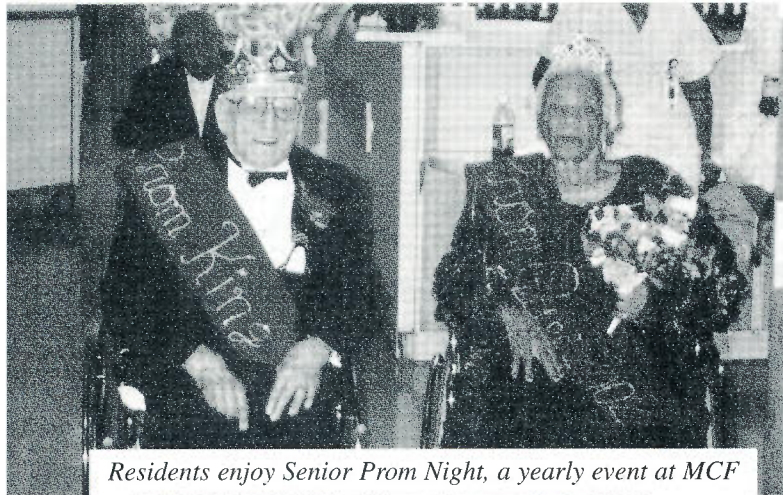 Prom King
Prom
Residents enjoy Senior Prom Night, a yearly event at MCF